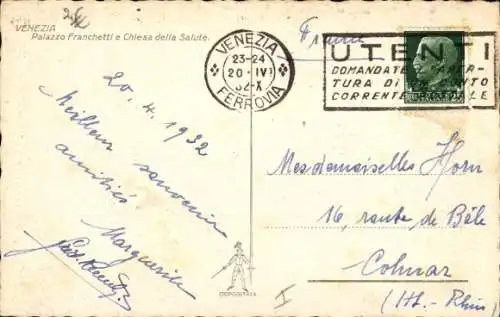 VENEZIA
Palazzo Franchetti e Chiesa della Salute.
VENEZIA
23-24
20·IV
32-X
FERROVIA
UTENTI
DOMANDATE
TURA DI
CORRENTE
France
20.4.1932
Meilleur souvenir
amitiés
Marguerite
Mesdemoiselles Horn
16, route de Bâle
Colmar
(Ht.-Rhin)
I